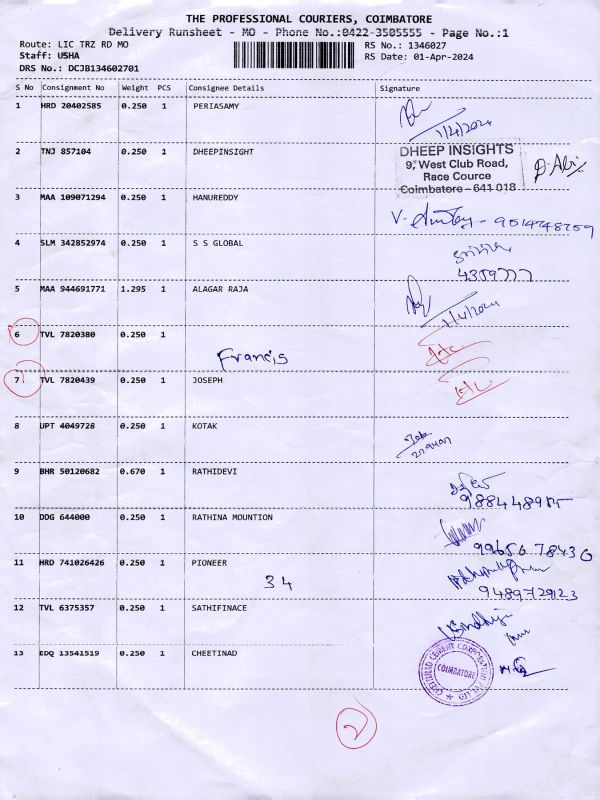 THE PROFESSIONAL COURIERS, COIMBATORE
Delivery Runsheet - MO - Phone No.:0422-3505555 - Page No.:1
Route: LIC TRZ RD MO RS No.: 1346027
Staff: USHA RS Date: 01-Apr-2024
DRS No.: DCJB134602701
S No Consignment No Weight PCS Consignee Details Signature
1 HRD 20402585 0.250 1 PERIASAMY
1/4/2024
2 TNJ 857104 0.250 1 DHEEPINSIGHT
DHEEP INSIGHTS
9, West Club Road,
Race Cource
Coimbatore - 641 018
3 MAA 109071294 0.250 1 HANUREDDY
4 SLM 342852974 0.250 1 S S GLOBAL
5 MAA 944691771 1.295 1 ALAGAR RAJA
1/4/2024
6 TVL 7820380 0.250 1
Francis
7 TVL 7820439 0.250 1 JOSEPH
8 UPT 4049728 0.250 1 KOTAK
9 BHR 50120682 0.670 1 RATHIDEVI
10 DDG 644000 0.250 1 RATHINA MOUNTION
99656 78430
11 HRD 741026426 0.250 1 PIONEER
34
9489729123
12 TVL 6375357 0.250 1 SATHIFINACE
13 EDQ 13541519 0.250 1 CHEETINAD
CHETTINAD CEMENT CORPORATION PVT LTD
COIMBATORE
2